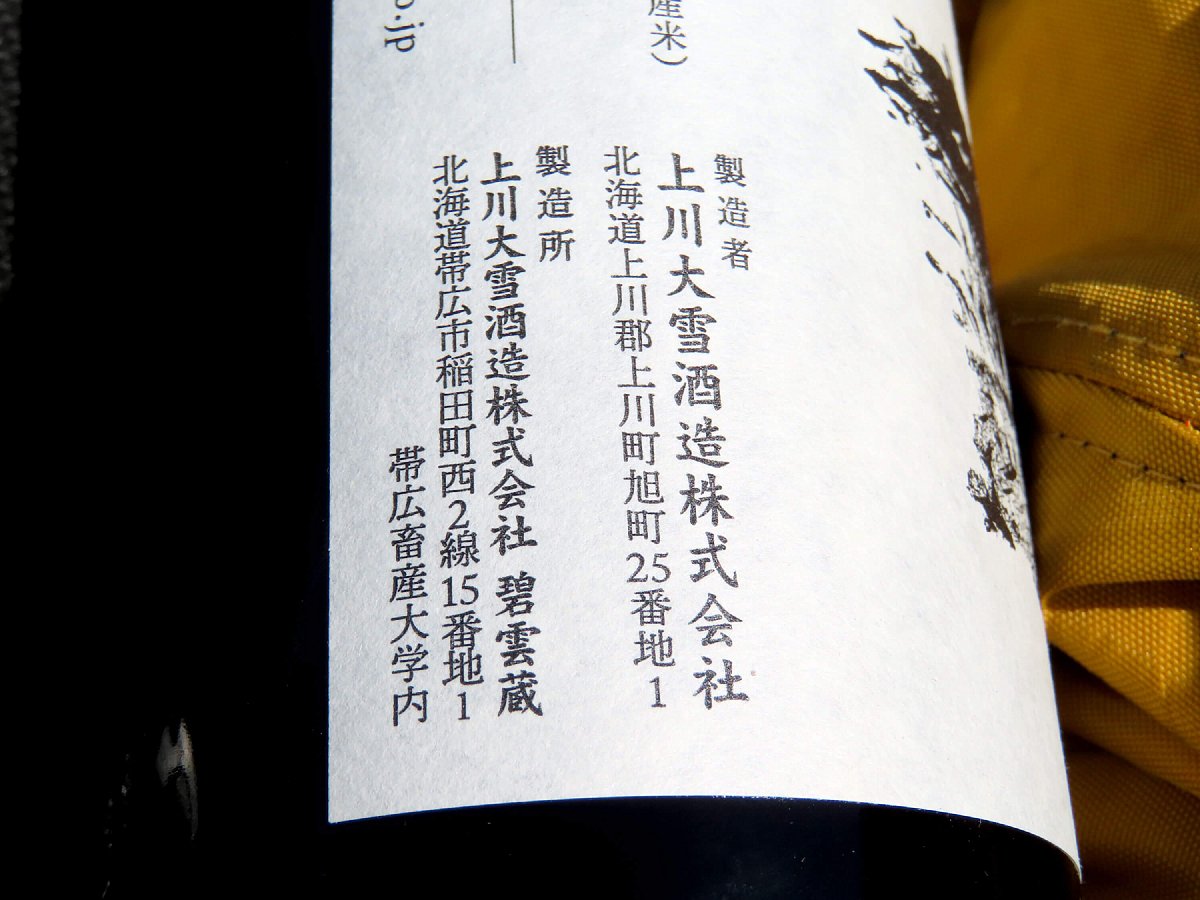 産米）
製造者
上川大雪酒造株式会社
北海道上川郡上川町旭町25番地1
製造所
上川大雪酒造株式会社 碧雲蔵
北海道帯広市稲田町西2線15番地1
帯広畜産大学内
.jp